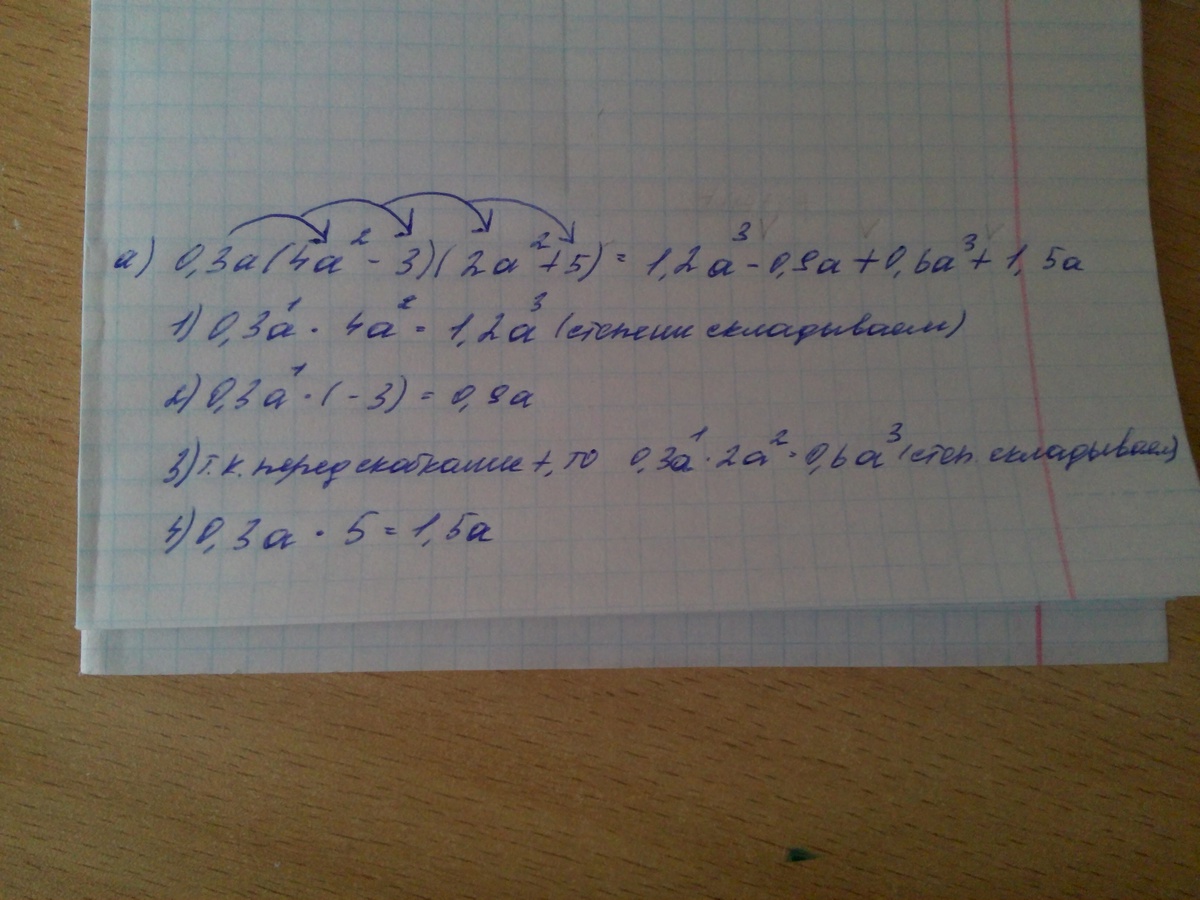 а) 0,3a(4a² - 3)(2a² + 5) = 1,2a³ - 0,9a + 0,6a³ + 1,5a
1) 0,3a¹ · 4a² = 1,2a³ (степени складываем)
2) 0,3a¹ · (-3) = 0,9a
3) т.к. перед скобками +, то 0,3a¹ · 2a² = 0,6a³ (степ. складываем)
4) 0,3a · 5 = 1,5a